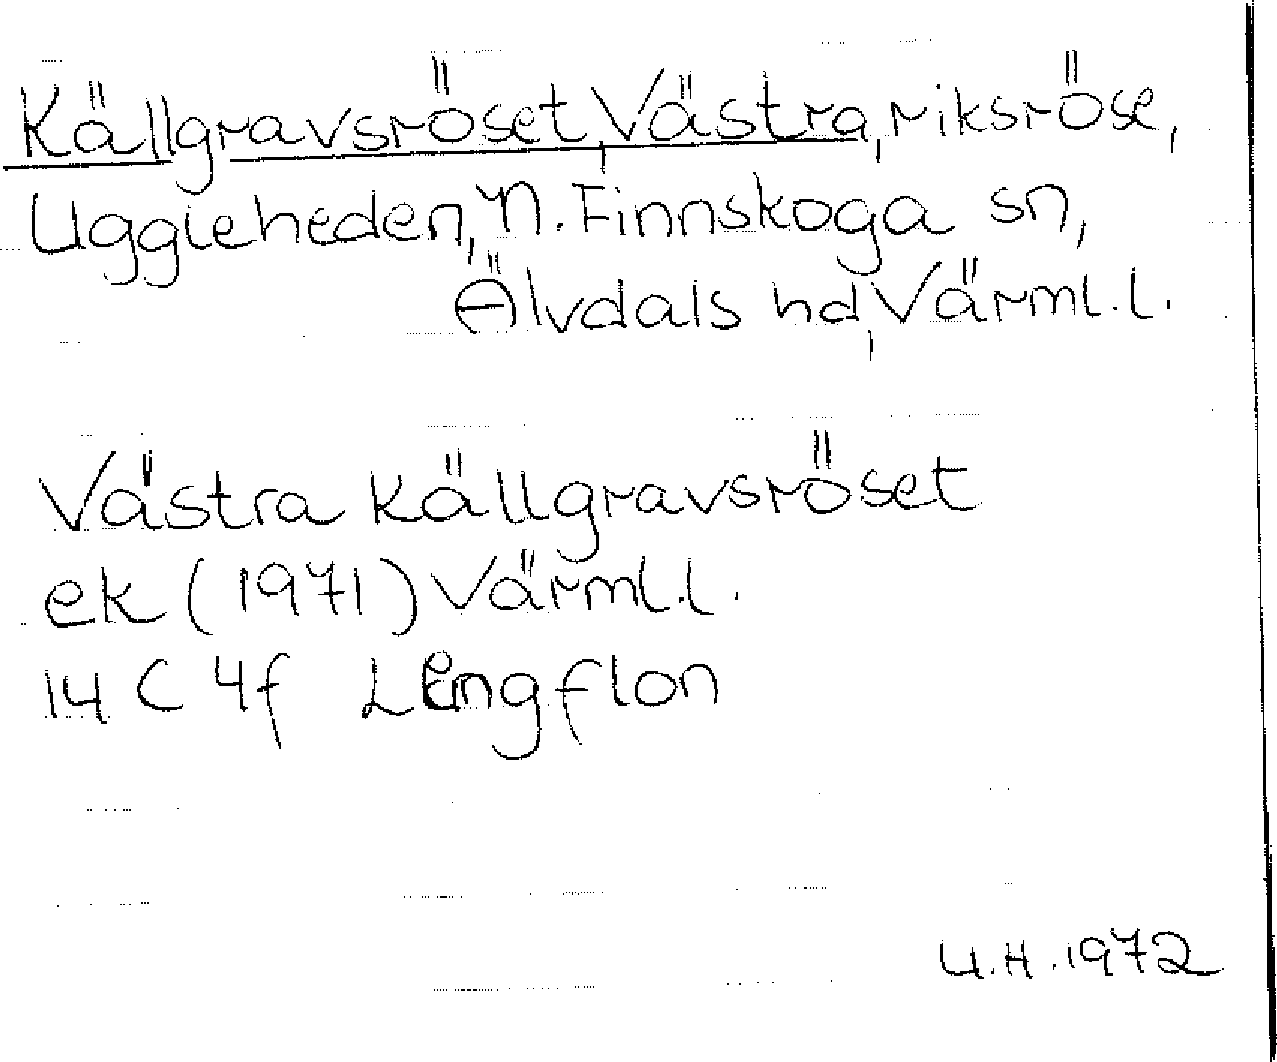 Källgravsröset, Västra, riksröse,
Uggleheden, N. Finnskoga sn,
Älvdals hd, Värml. l.
Västra Källgravsröset
ek (1971) Värml. l.
14 C 4f Långflon
U.H. 1972